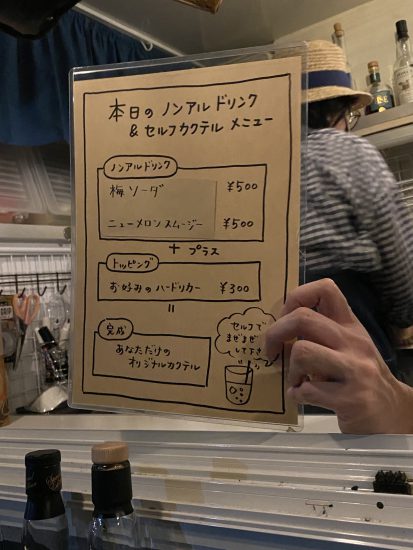 本日の ノンアルドリンク
& セルフカクテル メニュー
ノンアルドリンク
梅ソーダ ¥500
ニューメロンスムージー ¥500
+ プラス
トッピング
お好みのハードリカー ¥300
=
完成
あなただけの
オリジナルカクテル
セルフで
まぜまぜ
して下さ